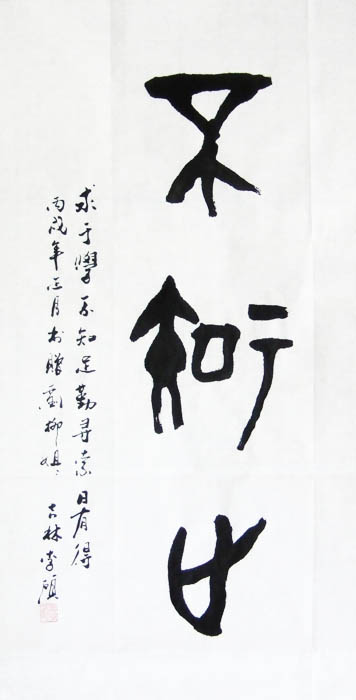 不知止
求于學不知足勤尋索日有得
丙戌年正月书贈劉柳姐 吉林李